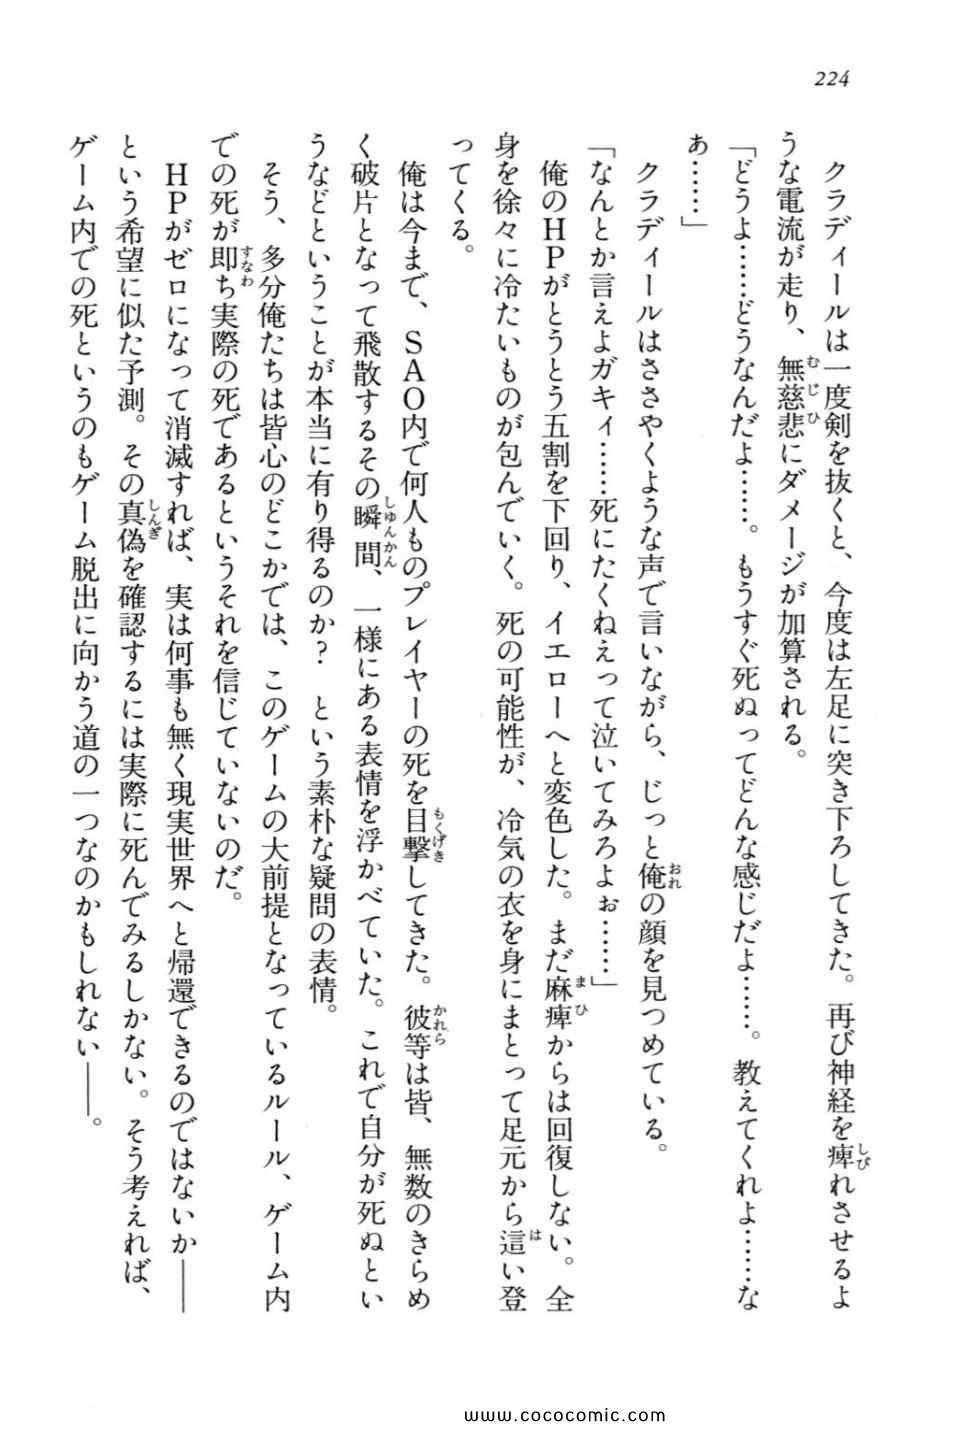 224
クラディールは一度剣を抜くと、今度は左足に突き下ろしてきた。再び神経を痺れさせるよ
うな電流が走り、無慈悲にダメージが加算される。
「どうよ……どうなんだよ……。もうすぐ死ぬってどんな感じだよ……。教えてくれよ……な
ぁ……」
クラディールはささやくような声で言いながら、じっと俺の顔を見つめている。
「なんとか言えよガキィ……死にたくねえって泣いてみろよぉ……」
俺のHPがとうとう五割を下回り、イエローへと変色した。まだ麻痺からは回復しない。全
身を徐々に冷たいものが包んでいく。死の可能性が、冷気の衣を身にまとって足元から這い登
ってくる。
俺は今まで、SAO内で何人ものプレイヤーの死を目撃してきた。彼等は皆、無数のきらめ
く破片となって飛散するその瞬間、一様にある表情を浮かべていた。これで自分が死ぬとい
うなどということが本当に有り得るのか？　という素朴な疑問の表情。
そう、多分俺たちは皆心のどこかでは、このゲームの大前提となっているルール、ゲーム内
での死が即ち実際の死であるというそれを信じていないのだ。
HPがゼロになって消滅すれば、実は何事も無く現実世界へと帰還できるのではないか――
という希望に似た予測。その真偽を確認するには実際に死んでみるしかない。そう考えれば、
ゲーム内での死というのもゲーム脱出に向かう道の一つなのかもしれない――。
www.cococomic.com